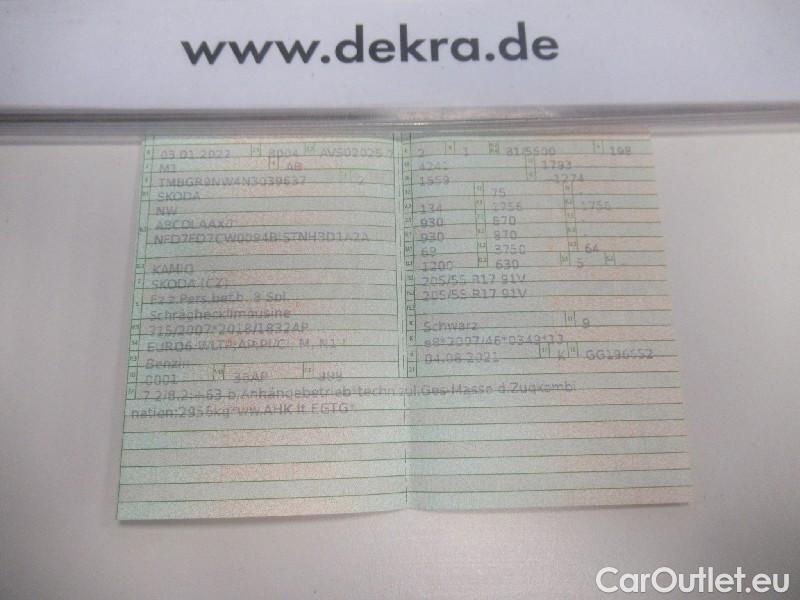 www.dekra.de
03.01.2022 8004 AVS02026
M1 AB
TMBGR9NW4N3039637 2
SKODA
NW
ABCDLAAX0
KAMIQ
SKODA (CZ)
Fz.z.Pers.bef.b. 8 Spl.
Schräghecklimousine
715/2007*2018/1832AP
Benzin
0001 36AP 999
7.2/8.2:+63 b.Anhängebetrieb*techn.zul.Ges-Masse d.Zugkombi
nation:2956kg*ww.AHK lt.EGTG*
2 1 81/5500 198
4241 1793
1559 -1274
75 -
134 1756 1756
930 870 -
930 870 -
69 3750 64
1200 630 5 -
205/55 R17 91V
205/55 R17 91V
Schwarz 9
e8*2007/46*0349*13
04.08.2021 K
CarOutlet.eu